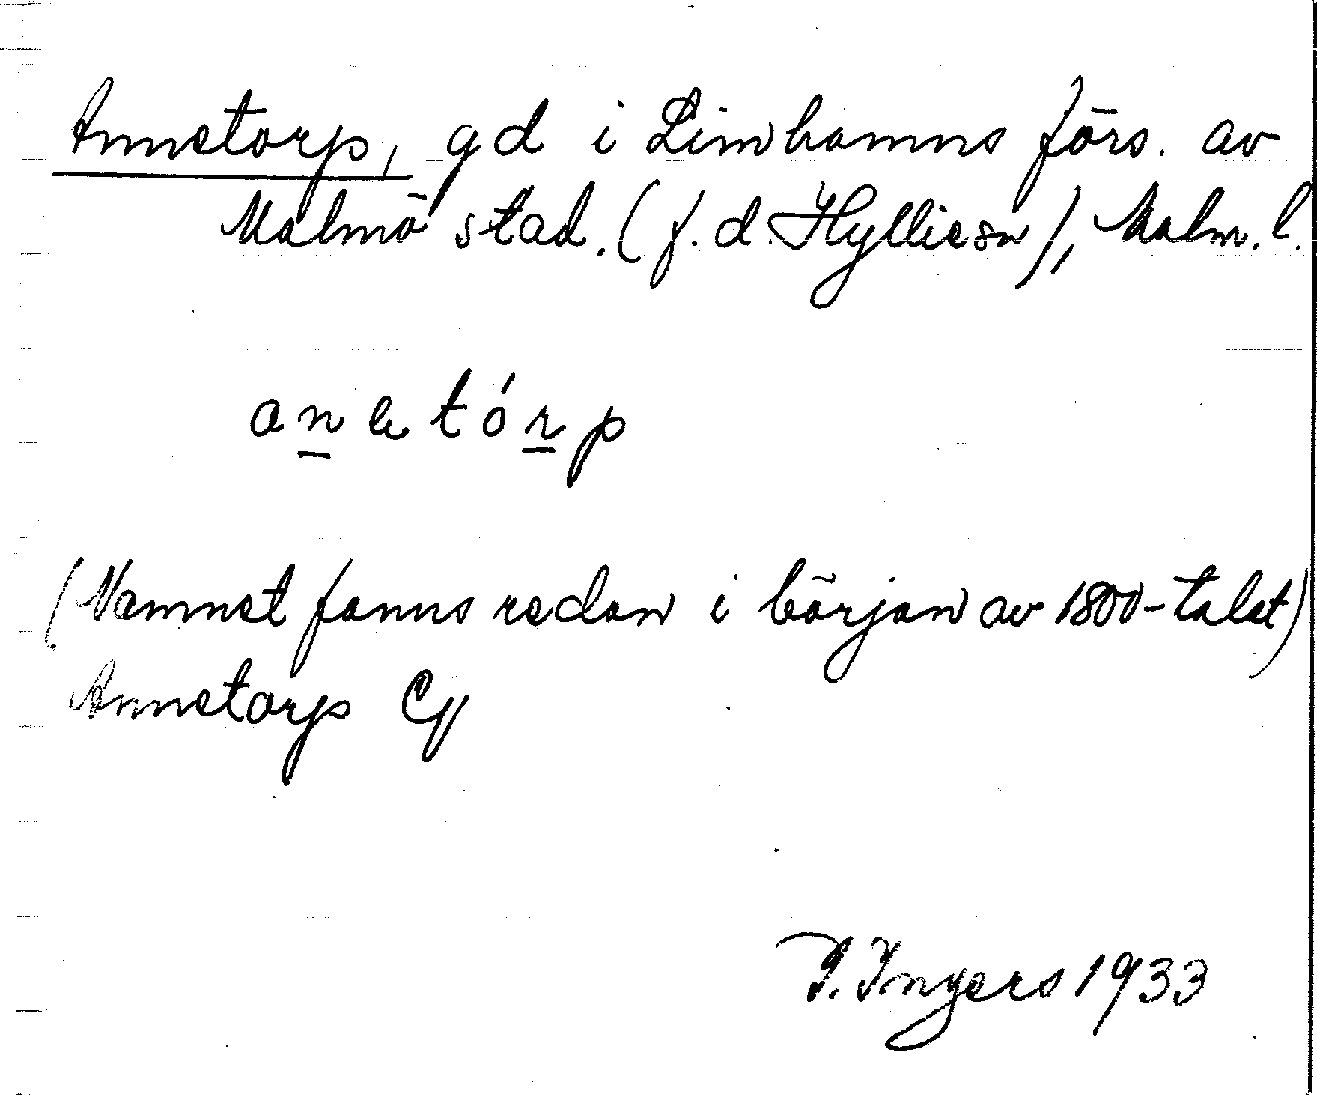 Annetorp, gd i Limhamns förs. av
Malmö stad. (f. d. Hyllie sn), Malm. l.
anetórp
(Namnet fanns redan i början av 1800-talet)
Annetorp
Ingers 1933